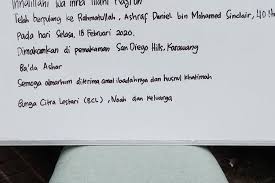 Innalillahi wa inna ilaihi
Telah berpulang ke Rahmatullah, Ashraf Daniel bin Mohamed Sinclair, 40
Pada hari Selasa, 18 Februari 2020.
Dimakamkan di pemakaman San Diego Hills, Karawang
Ba'da Ashar
Semoga almarhum diterima amal ibadahnya dan husnul khatimah
Bunga Citra Lestari (BCL), Noah dan Keluarga